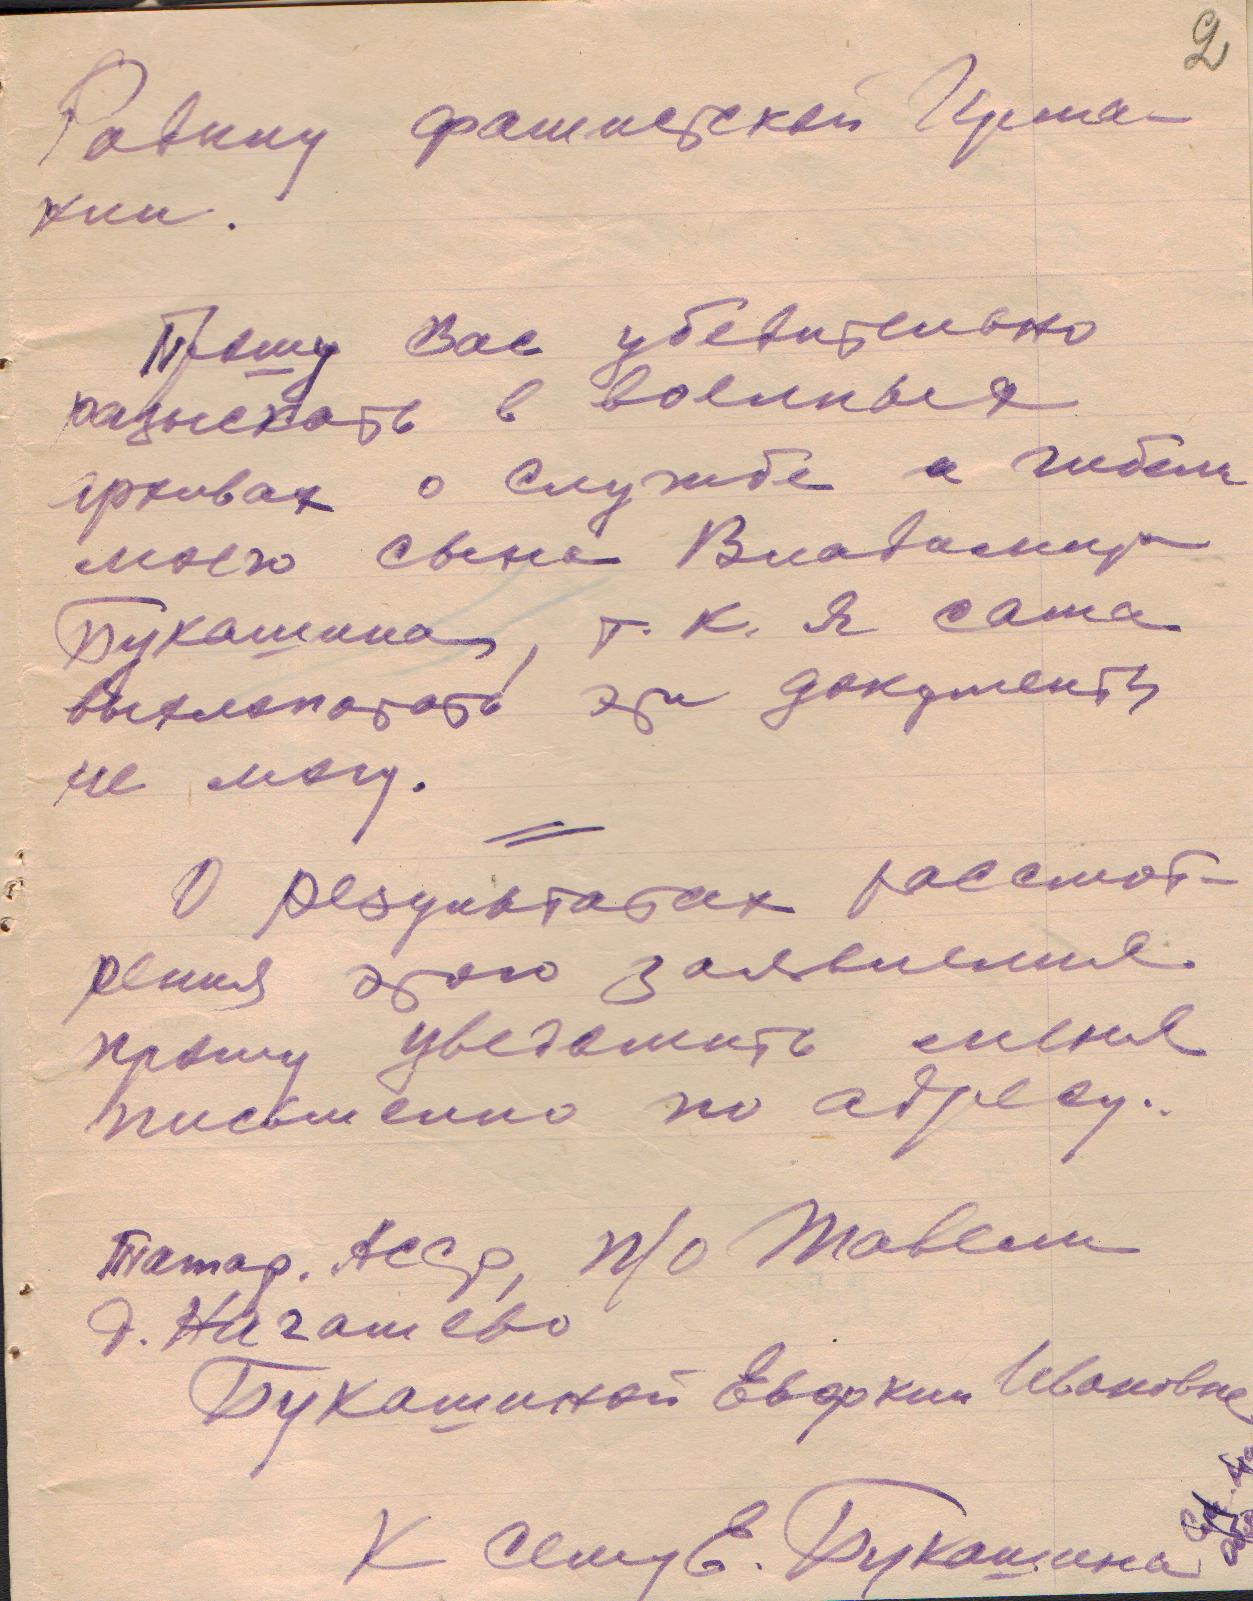 2
Родину фашистской Герма-
нии.
Прошу Вас убедительно
разыскать в военных
архивах о службе и гибели
моего сына Владимира
Букашина, т. к. я сама
выхлопотать эти документы
не могу.
О результатах рассмот-
рения этого заявления
прошу уведомить меня
письменно по адресу.
Татар. АССР, п/о Шавели
д. Ничашево
Букашиной Евдокии Ивановне
К сему Е. Букашина